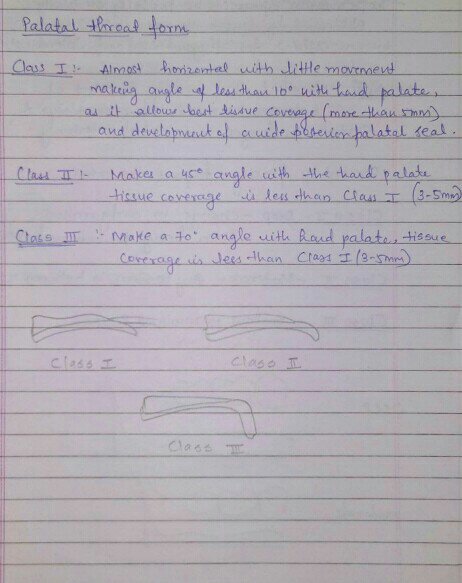 Palatal throat form
Class I :- Almost horizontal with little movement
making angle of less than 10° with hard palate,
as it allows best tissue coverage (more than 5mm)
and development of a wide posterior palatal seal.
Class II :- Makes a 45° angle with the hard palate
tissue coverage is less than Class I (3-5mm)
Class III :- Make a 70° angle with hard palate, tissue
coverage is less than Class I (3-5mm)
Class I
Class II
Class III